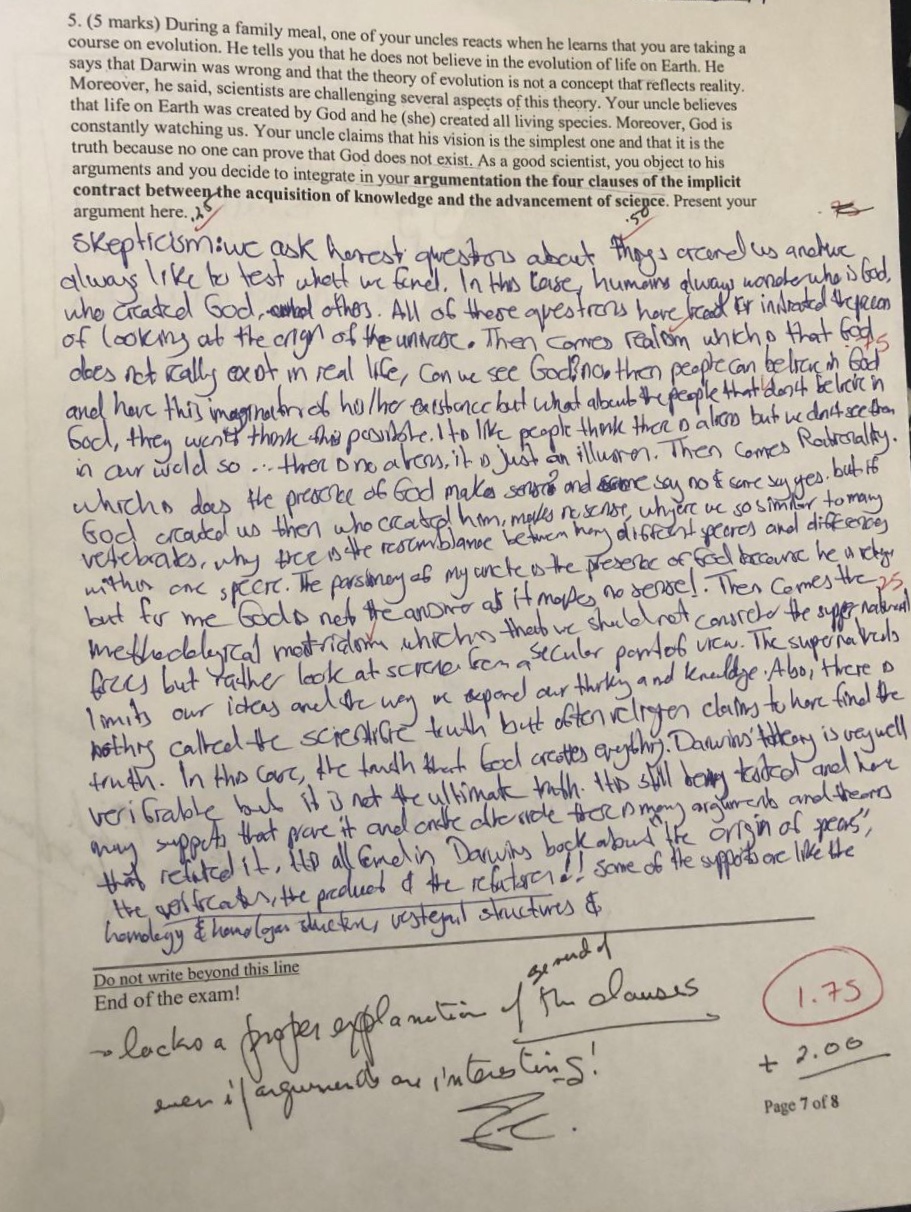 5. (5 marks) During a family meal, one of your uncles reacts when he learns that you are taking a
course on evolution. He tells you that he does not believe in the evolution of life on Earth. He
says that Darwin was wrong and that the theory of evolution is not a concept that reflects reality.
Moreover, he said, scientists are challenging several aspects of this theory. Your uncle believes
that life on Earth was created by God and he (she) created all living species. Moreover, God is
constantly watching us. Your uncle claims that his vision is the simplest one and that it is the
truth because no one can prove that God does not exist. As a good scientist, you object to his
arguments and you decide to integrate in your argumentation the four clauses of the implicit
contract between the acquisition of knowledge and the advancement of science. Present your
argument here. .25 .50
Skepticism: we ask honest questions about things around us and we
always like to test what we find. In this case, humans always wonder who is God,
who created God, others. All of these questions have
of looking at the origin of the universe. Then comes realism which is that God .75
does not really exist in real life, can we see God? no. then people can believe in God
and have this imagination of his/her existence but what about the people that don't believe in
God, they won't think this possible. Its like people think there is aliens but we don't see them
in our world so ... there is no aliens, it is just an illusion. Then comes Rationality.
which is does the presence of God makes sense? and some say no & some say yes. but if
God created us then who created him, makes no sense, why are we so similar to many
vertebrates, why there is the resemblance between many different species and differences
within one specie. The parsimony of my uncle is the presence of God because he is
but for me God is not the answer as it makes no sense!. Then comes the .25
methodological which is that we should not consider the supernatural
forces but rather look at science from a secular point of view. The supernaturals
limits our ideas and the way we expand our thinking and knowledge. Also, there is
nothing called the scientific truth but often religion claims to have find the
truth. In this case, the truth that God creates everything. Darwins' theory is very well
verifiable but it is not the ultimate truth. Its still being tested and have
many supports that prove it and on the other side there is many arguments and theories
that refuted it, its all found in Darwins book about "the origin of species",
the the product & the refutation!! some of the supports are like the
homology & homologous structure, vestegial structures &
Do not write beyond this line
End of the exam!
→ lacks a proper explanation of the clauses
even if arguments are interesting!
1.75
+ 2.00
Page 7 of 8